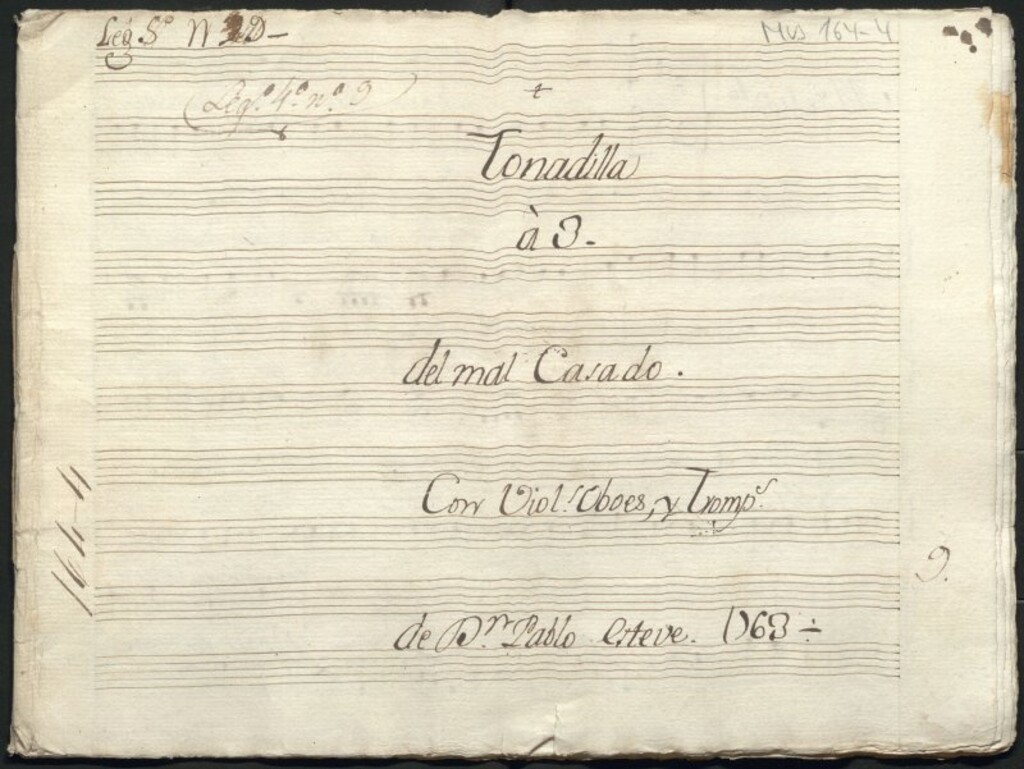 Leg S.º N
Mus 164-4
Leg.º 4.º n.º 9
+
Tonadilla
à 3.
del mal Casado.
Con Viol.s Oboes, y Tromp.s
9.
164-4
de D.n Pablo Esteve. 1763